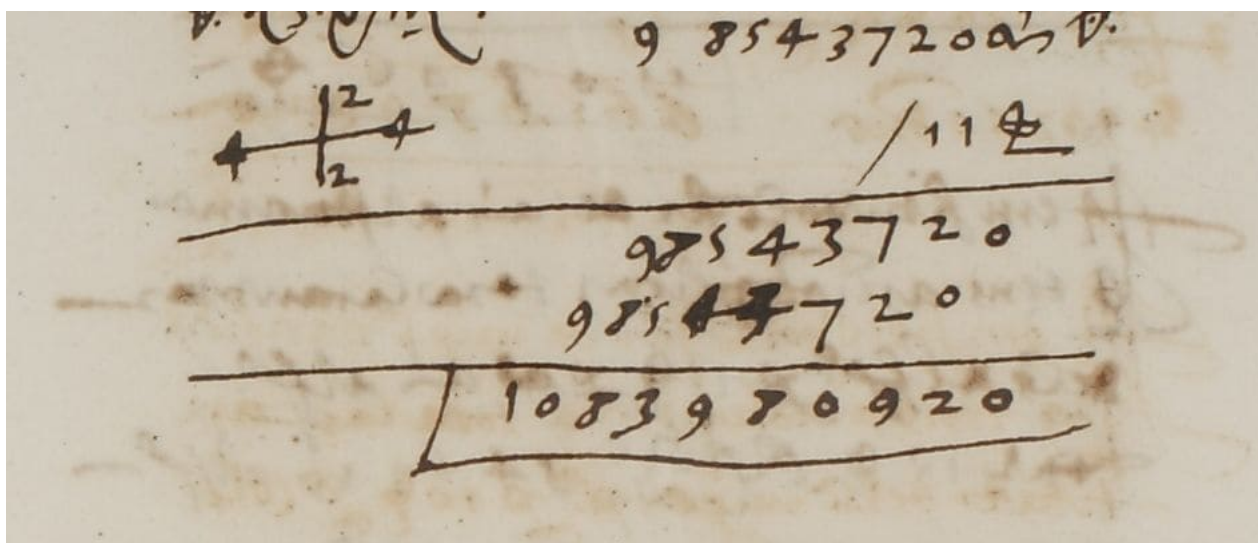 9 8543720
2
4 4
2
/11
98543720
98543720
1083980920